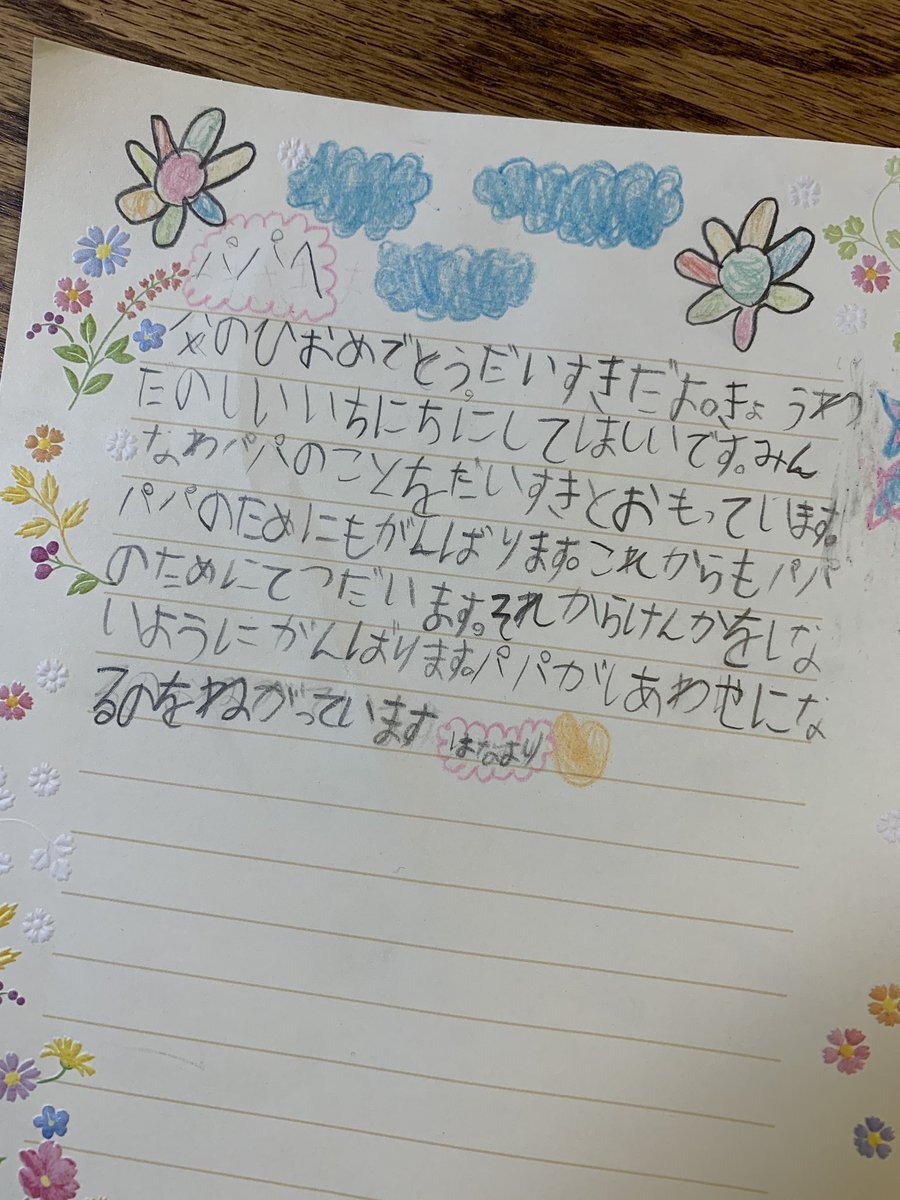 パパへ
父のひおめでとう。だいすきだよ。きょうわ
たのしいいちにちにしてほしいです。みん
なわパパのことをだいすきとおもっています。
パパのためにもがんばります。これからもパパ
のためにてつだいます。それからけんかをしな
いようにがんばります。パパがしあわせにな
るのをねがっています
はなより